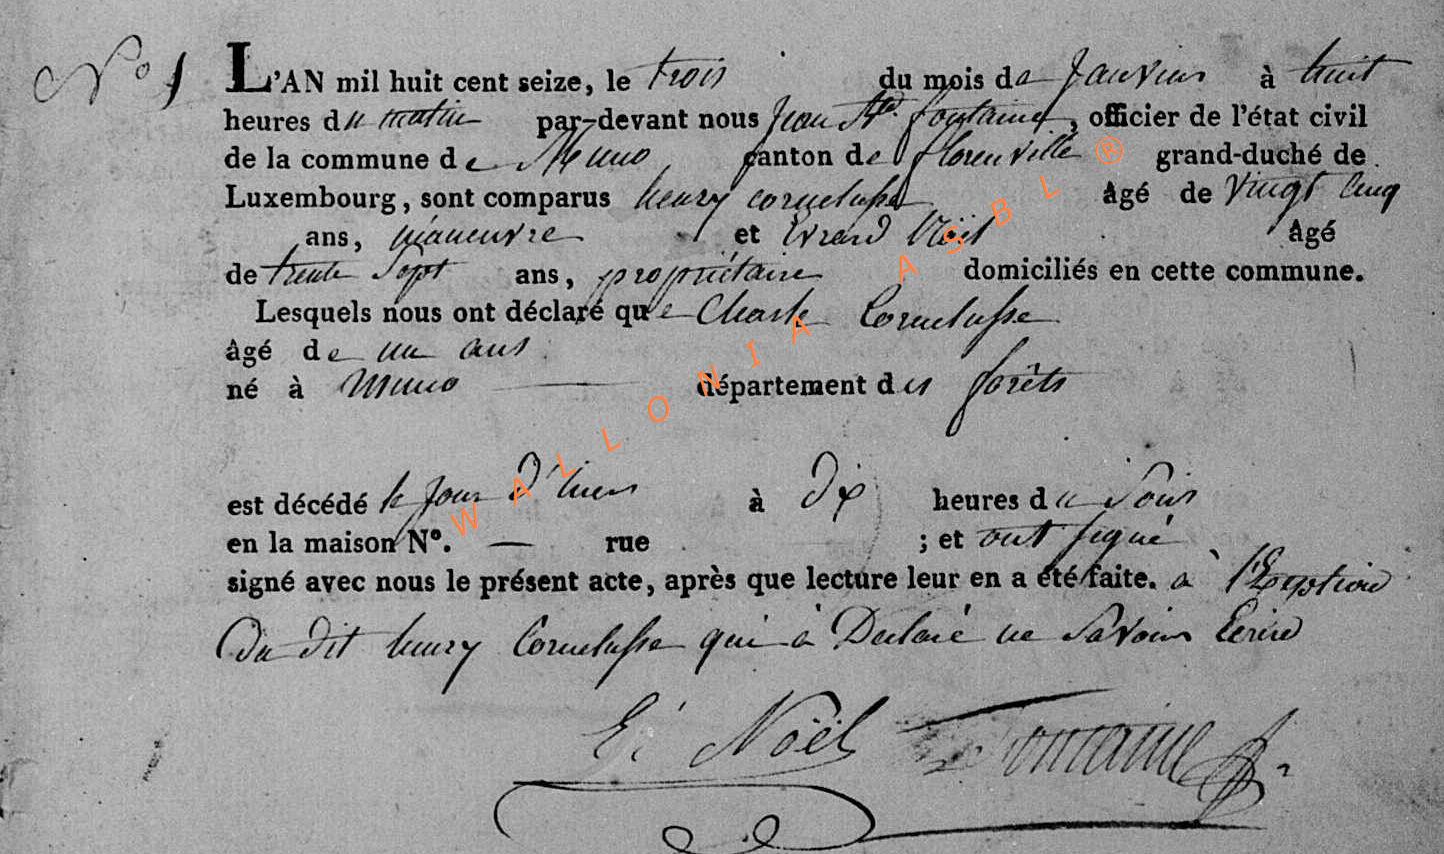 N° 1
L'AN mil huit cent seize, le trois du mois de Janvier à huit
heures du matin par-devant nous Jean Bte. fontaine, officier de l'état civil
de la commune de Muno canton de florenville grand-duché de
Luxembourg, sont comparus henry cornelusse âgé de vingt cinq
ans, maneuvre et Evrard Noël âgé
de trente Sept ans, propriétaire domiciliés en cette commune.
Lesquels nous ont déclaré que Charle Cornelusse
âgé de un ans
né à Muno département des forêts
est décédé le jour d'hier à dix heures du Soir
en la maison N°. — rue ; et ont signé
signé avec nous le présent acte, après que lecture leur en a été faite. à l'Exeption
Du dit henry Cornelusse qui à Declaré ne Savoir Ecrire
E. Noël Fontaine
WALLONIA ASBL ®